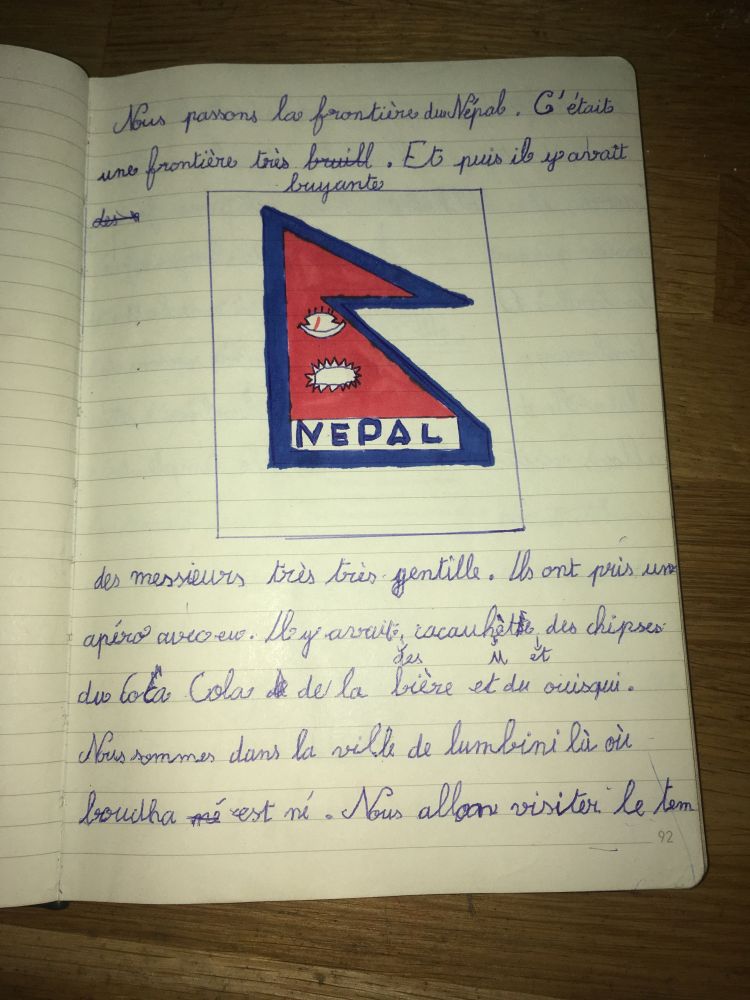 Nous passons la frontière du Népal. C'était
une frontière très bruill. Et puis il y avait
bruyante
des
NEPAL
des messieurs très très gentille. Ils ont pris un
apéro avec eu. Il y avait cacauhète des chipses
des u et
du Coca Cola de la bière et du ouisqui.
Nous sommes dans la ville de lumbini là où
boudha né est né. Nous allon visiter le tem
92